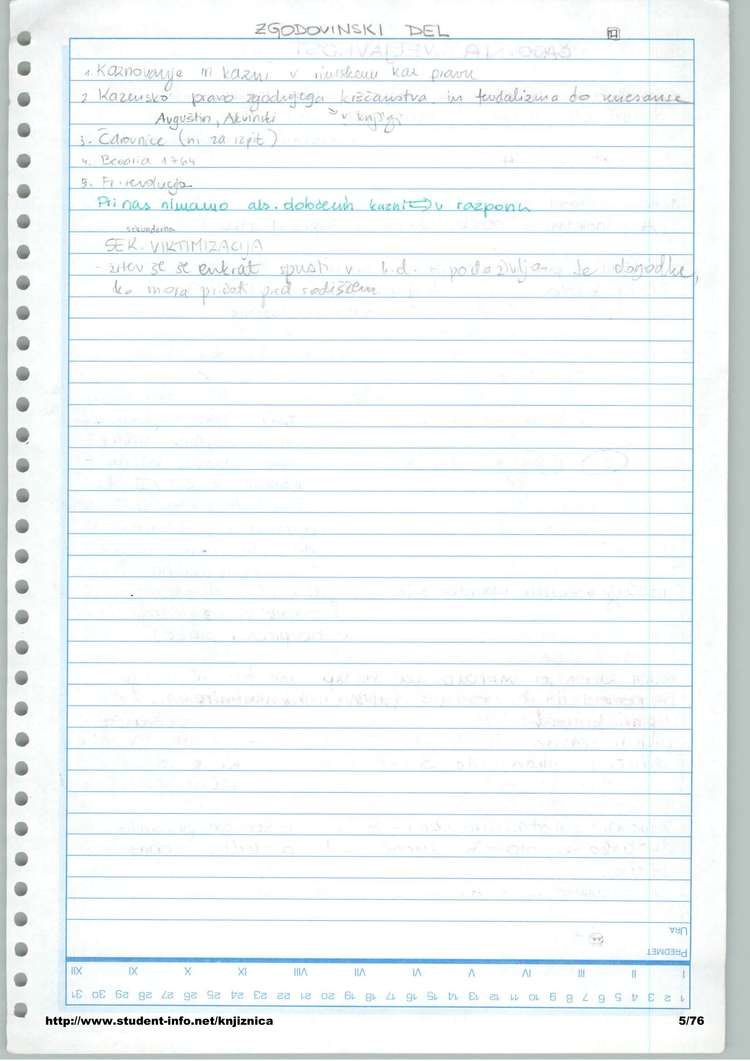 ZGODOVINSKI DEL
1. Kaznovanje in kazni v rimskem kaz pravu
2. Kazensko pravo zgodnjega krščanstva in fevdalizma do renesanse
Avguštin, Akvinski v knjigi
3. Čarovnice (ni za izpit)
4. Beccaria 1764
5. Fr. revolucija
Pri nas nimamo abs. določenih kazni ⇒ v razponu
sekundarna
SEK. VIKTIMIZACIJA
- žrtev se še enkrat spusti v k.d. - podoživlja te dogodke,
ko mora pričat pred sodiščem
URA
PREDMET
I II III IV V VI VII VIII IX X XI XII
1 2 3 4 5 6 7 8 9 10 11 12 13 14 15 16 17 18 19 20 21 22 23 24 25 26 27 28 29 30 31
http://www.student-info.net/knjiznica 5/76